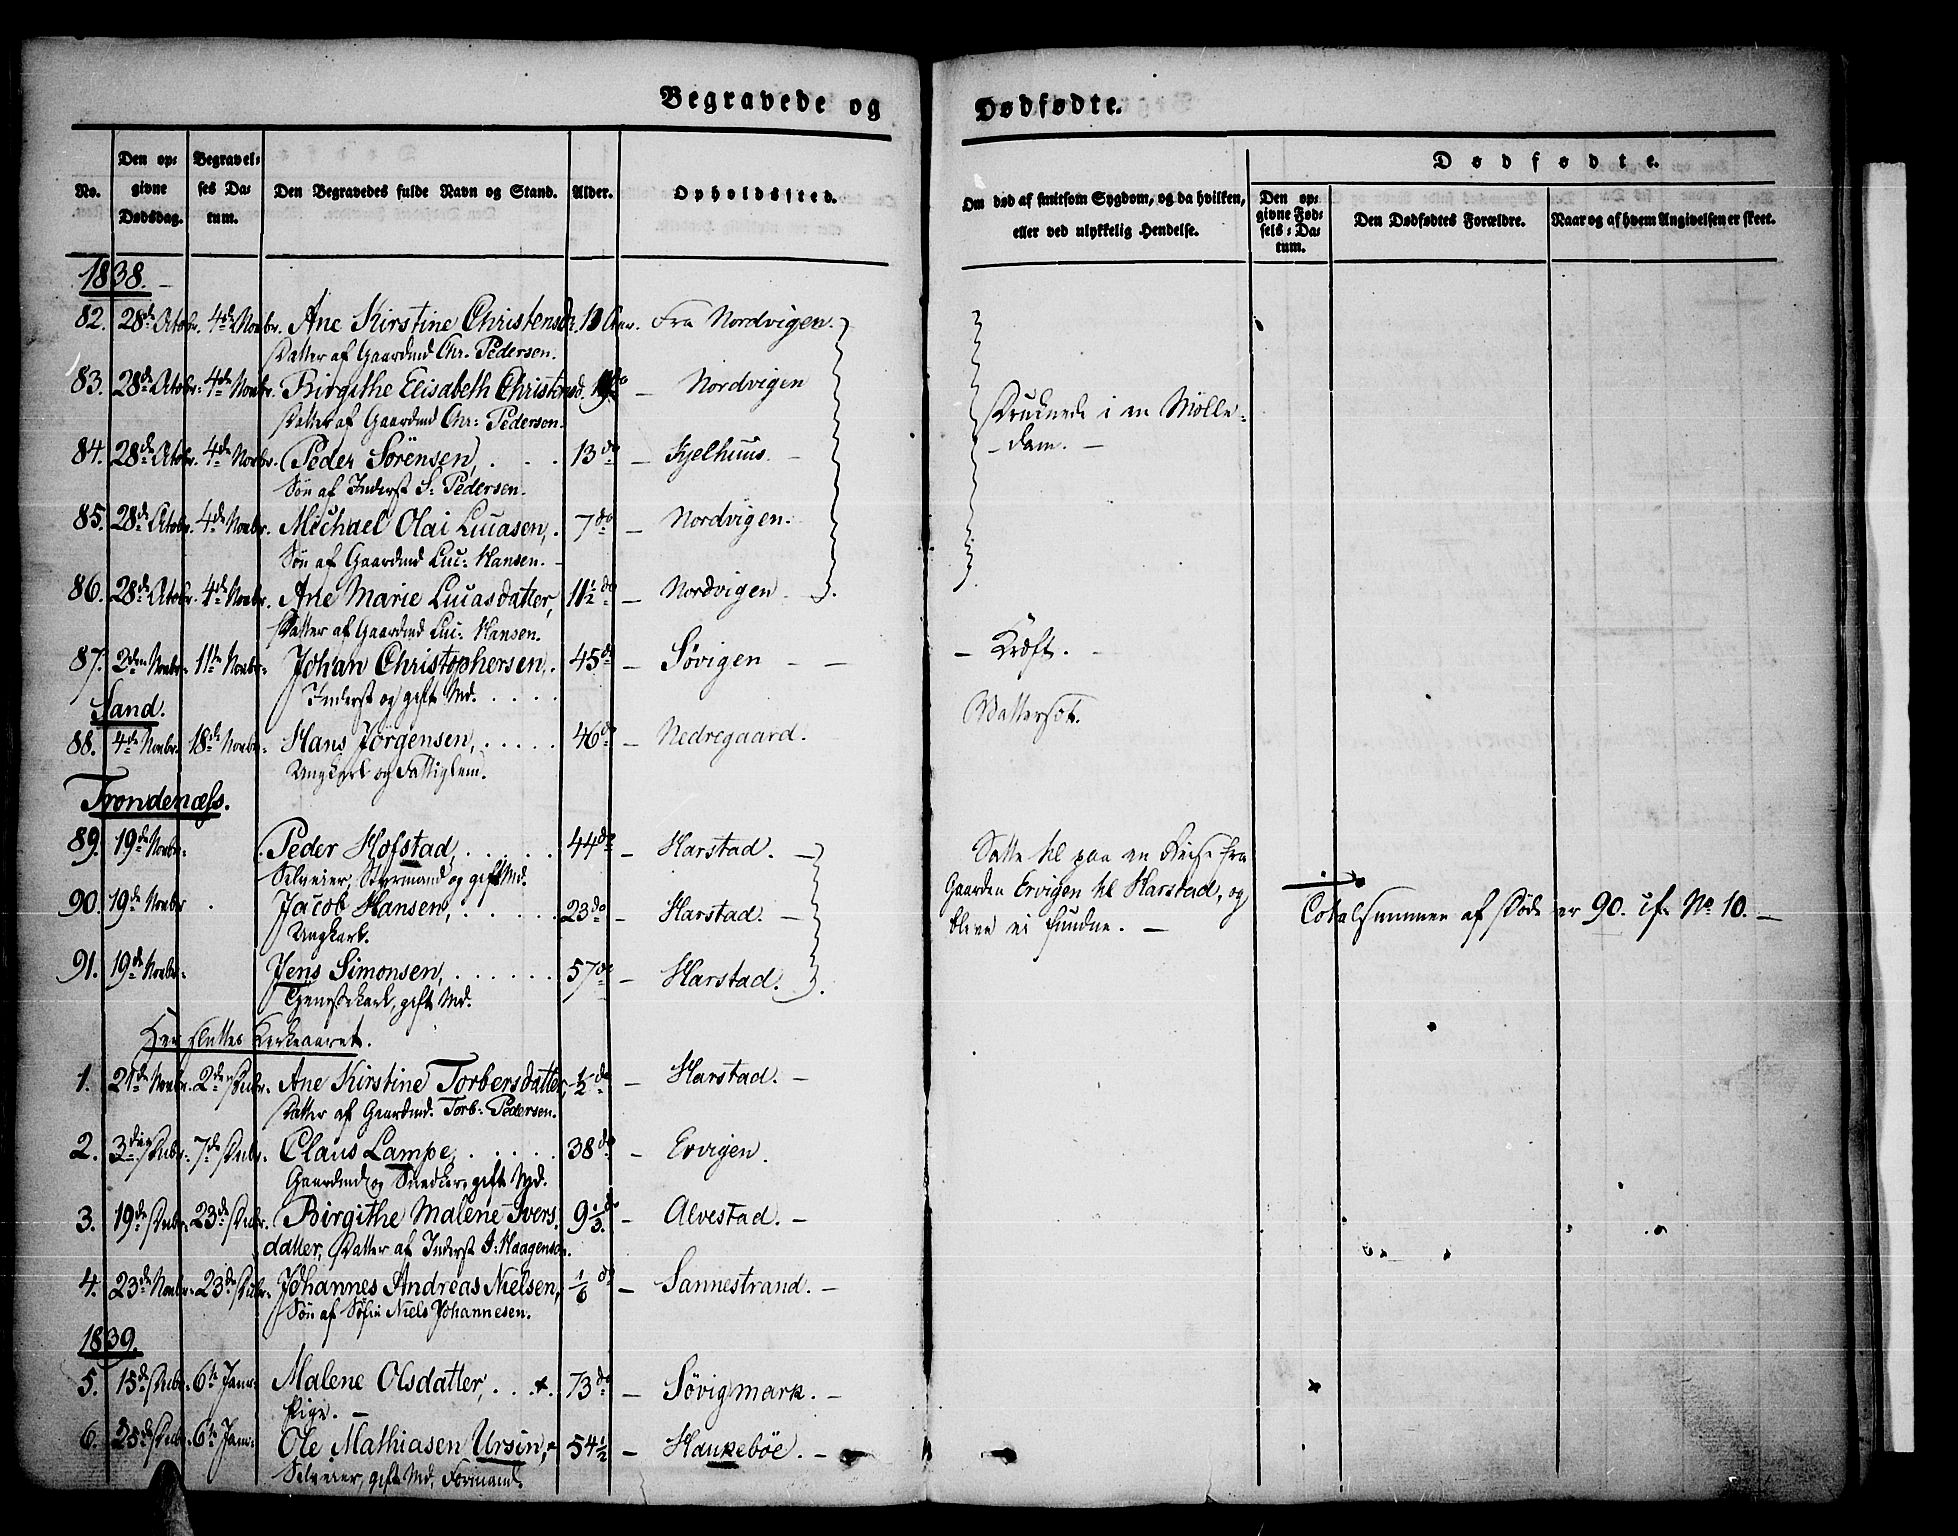 Begravede og
Dødfødte.
No.
Den op-
givne
Dødsdag.
Begravel-
ses Da-
tum.
Den Begravedes fulde Navn og Stand.
Alder.
Opholdssted.
Om død af smitsom Sygdom, og da hvilken,
eller ved ulykkelig Hendelse.
Dødfødte.
Den op-
givne Fød-
sels-Da-
tum.
Den Dødfødtes Forældre.
Naar og af hvem Angivelsen er skeet.
1838.
82. 28de Octobr. 4de Novbr. Ane Kirstine Christensd. Aar. Fra Nordvigen.
Datter af Gaardmd Chr. Pedersen.
83. 28de Octobr. 4de Novbr. Birgithe Elisabeth Christensd. do — Nordvigen
Datter af Gaardmd Chr: Pedersen.
Druknede i en Mølle-
dam. —
84. 28de Octobr. 4de Novbr. Peder Sörensen, 13 do — Kjelhuus —
Søn af Inderst S: Pedersen.
85. 28de Octobr. 4de Novbr. Michael Olai Lucasen, 7 do — Nordvigen.
Søn af Gaardmd Luc: Hansen.
86. 28de Octobr. 4de Novbr. Ane Marie Lucasdatter, 11½ do — Nordvigen
Datter af Gaardmd Luc: Hansen.
87. 2den Novbr. 11te Novbr. Johan Christophersen, 45 do — Søvigen — — Kræft. —
Inderst og gift Md.
Sand.
88. 4de Novbr. 18de Novbr. Hans Jörgensen, 46 do — Nedregaard. Wattersot.
Ungkarl og Fattiglem.
Trondenæss.
89. 19de Novbr. Peder Hofstad, 44 do — Harstad. —
Selveier, Styrmand og gift Md.
Satte til paa en Reise fra
Gaarden Ervigen til Harstad, og
bleve ei fundne. —
90. 19de Novbr Jacob Hansen, 23 do — Harstad. —
Ungkarl.
Totalsummen af Døde er 90. cf. No 10. —
91. 19de Novbr. Jens Simonsen, 57 do — Harstad.
Tjenestekarl, gift Md.
Her sluttes Kirkeaaret.
1. 21de Novbr. 2den Decbr. Ane Kirstine Torbersdatter, ½ do — Harstad. —
Datter af Gaardmd. Torb: Pedersen.
2. 3die Decbr. 7de Decbr. Claus Lampe, 38 do — Ervigen.
Gaardmd og Snedker, gift Md.
3. 19de Decbr. 23de Decbr. Birgithe Malene Ivers-
datter, Datter af Inderst I: Haagensen. 9⅓ do — Alvestad. —
4. 23de Novbr. 23de Decbr. Johannes Andreas Nielsen, 1/6 do — Sannestrand. —
Søn af Niels Johannesen.
1839.
5. 15de Decbr. 6te Janr. Malene Olsdatter, 73 do — Søvigmark. —
Pige. —
6. 25de Decbr. 6te Janr. Ole Mathiasen Ursin, 54½ — Haukebøe. —
Selveier, gift Md, Formand.